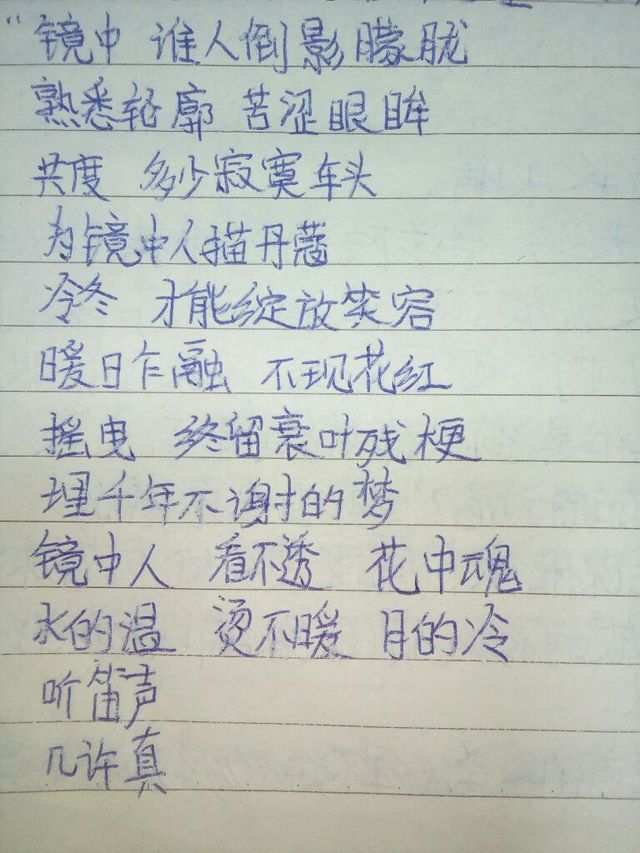 “镜中 谁人倒影朦胧
熟悉轮廓 苦涩眼眸
共度 多少寂寞车头
为镜中人描丹蔻
冷冬 才能绽放笑容
暖日乍融 不现花红
摇曳 终留衰叶残梗
埋千年不谢的梦
镜中人 看不透 花中魂
水的温 烫不暖 月的冷
听笛声
几许真